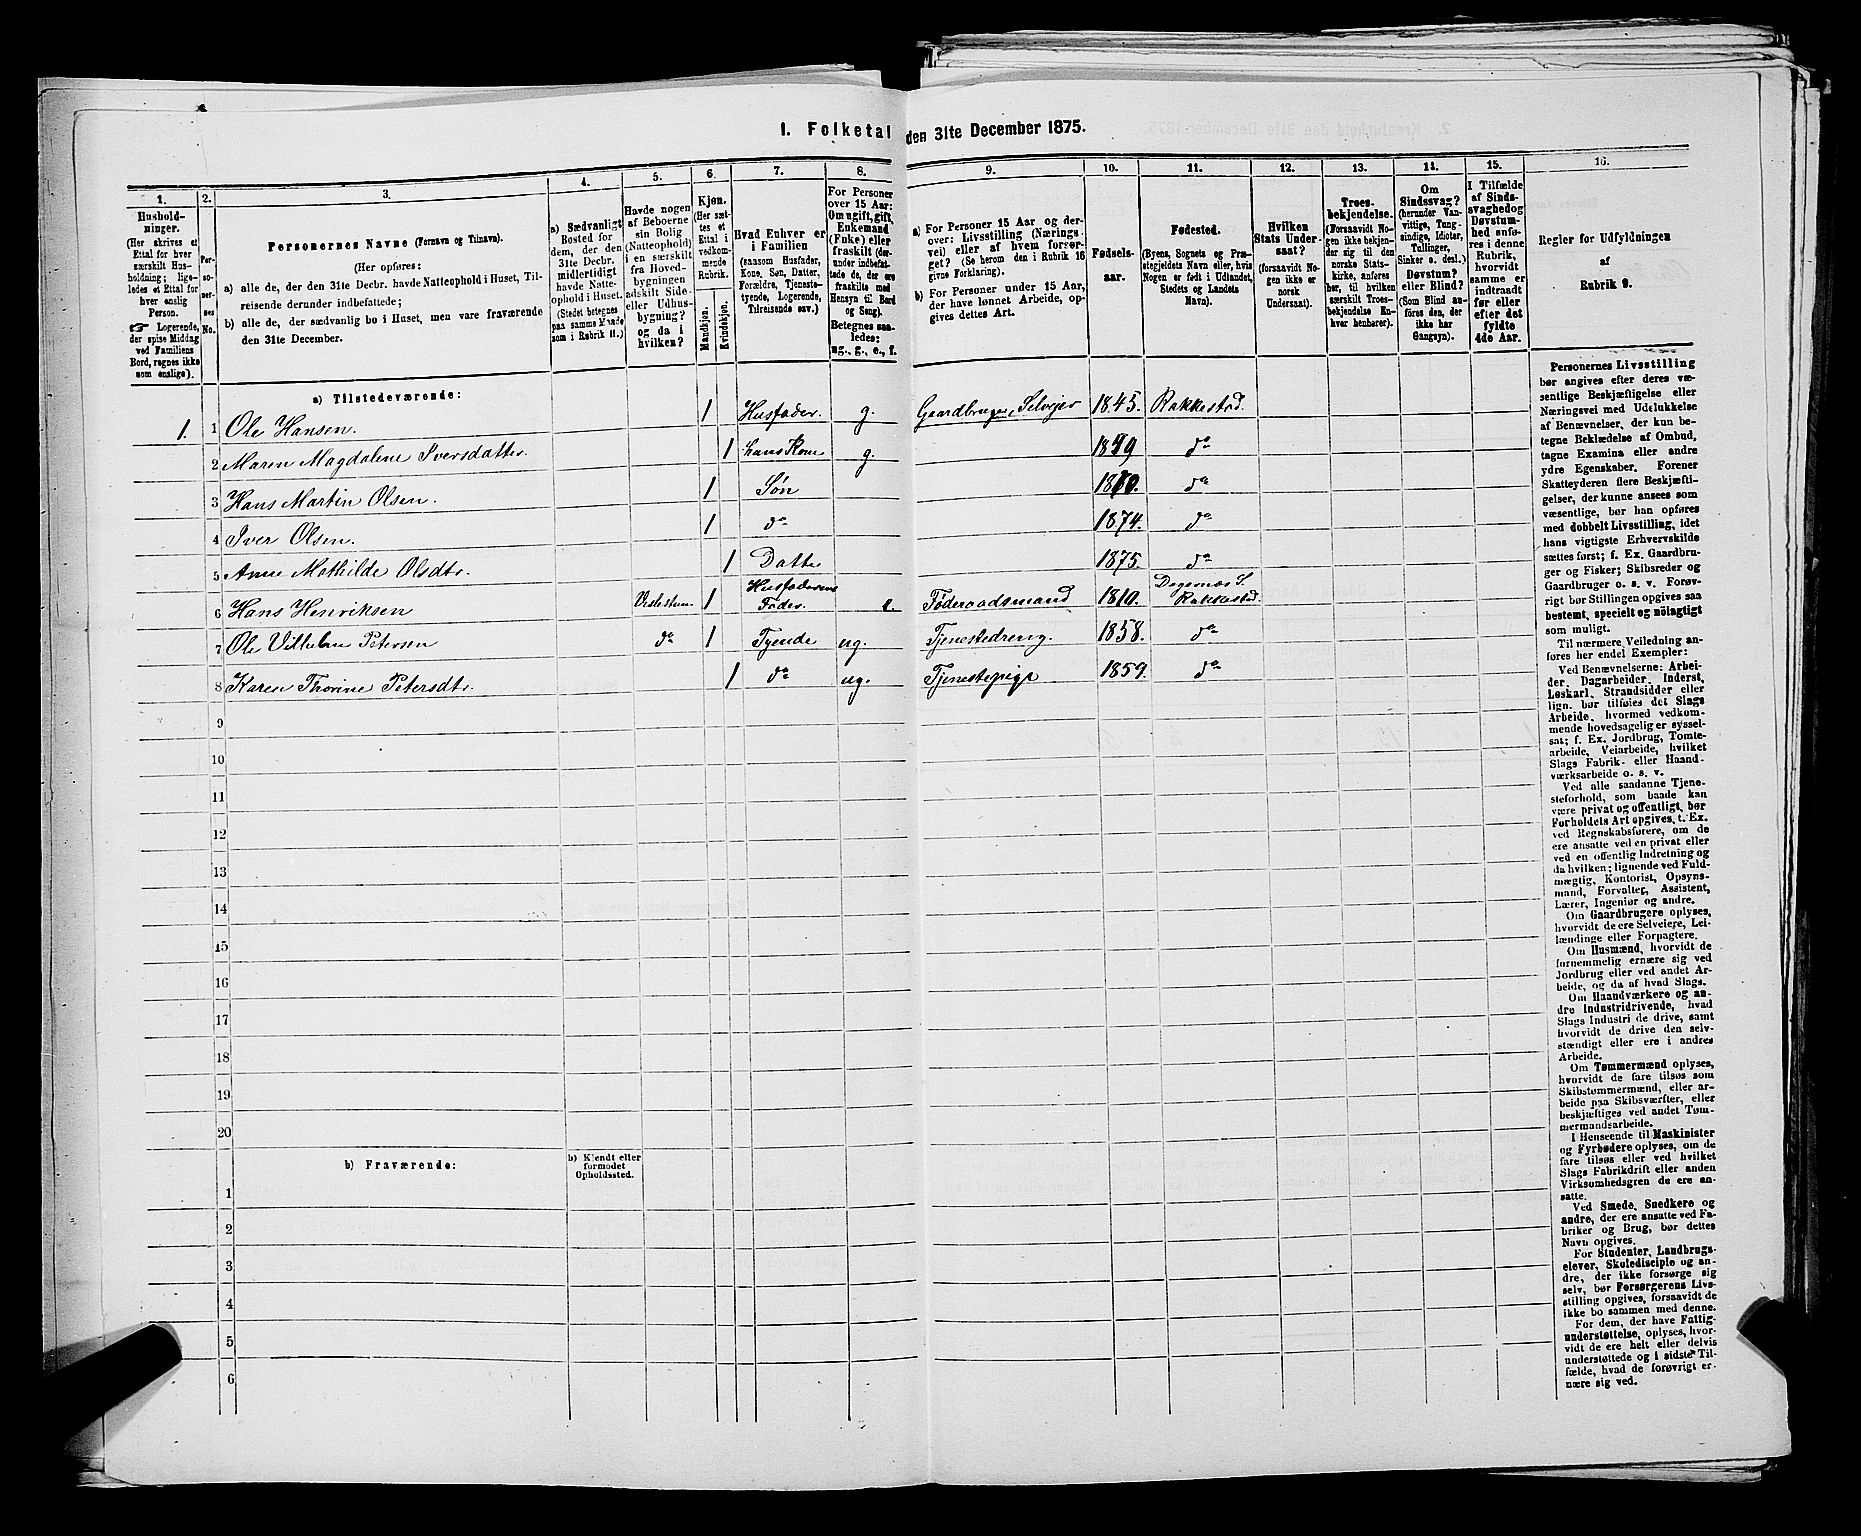 1. Folketal den 31te December 1875.
1. 2. 3. 4. 5. 6. 7. 8. 9. 10. 11. 12. 13. 14. 15. 16.
Hushold-
ninger.
(Her skrives et
Ettal for hver
særskilt Hus-
holdning; lige-
ledes et Ettal for
hver enslig
Person.
☞ Logerende,
der spise Middag
ved Familiens
Bord, regnes ikke
som enslige).
Per-
so-
ner-
nes
No.
Personernes Navne (Fornavn og Tilnavn).
(Her opføres:
a) alle de, der den 31te Decbr. havde Natteophold i Huset, Til-
reisende derunder indbefattede;
b) alle de, der sædvanlig bo i Huset, men vare fraværende
den 31te December.
a) Sædvanligt
Bosted for
dem, der den
31te Decbr.
midlertidigt
havde Natte-
ophold i Huset.
(Stedet betegnes
paa samme Maade
som i Rubrik 11.)
Havde nogen
af Beboerne
sin Bolig
(Natteophold)
i en særskilt
fra Hoved-
bygningen
adskilt Side-
eller Udhus-
bygning?
og da i
hvilken?
Kjøn.
(Her sæt-
tes et
Ettal i
vedkom-
mende
Rubrik.
Mandkjøn.
Kvindekjøn.
Hvad Enhver er
i Familien
(saasom Husfader,
Kone, Søn, Datter,
Forældre, Tjeneste-
tyende, Logerende,
Tilreisende osv.)
For Personer
over 15 Aar:
Om ugift, gift,
Enkemand
(Enke) eller
fraskilt (der-
under indbefat-
tede de, der ere
fraskilte med
Hensyn til Bord
og Seng).
Betegnes saa-
ledes:
ug., g., e., f.
a) For Personer 15 Aar og der-
over: Livsstilling (Nærings-
vei) eller af hvem forsør-
get? (Se herom den i Rubrik 16
givne Forklaring).
b) For Personer under 15 Aar,
der have lønnet Arbeide, op-
gives dettes Art.
Fødsels-
aar.
Fødested.
(Byens, Sognets og Præ-
stegjeldets Navn eller, hvis
Nogen er født i Udlandet,
Stedets og Landets
Navn).
Hvilken
Stats Under-
saat?
(forsaavidt No-
gen ikke er
norsk
Undersaat).
Troes-
bekjendelse.
(Forsaavidt No-
gen ikke bekjen-
der sig til den
norske Stats-
kirke, anføres
her, til hvilken
særskilt Troes-
bekjendelse En-
hver henhører).
Om
Sindssvag?
(herunder Van-
vittige, Tung-
sindige, Idioter,
Tullinger,
Sinker o. desl.)
Døvstum?
eller Blind?
(Som Blind an-
føres den, der
ikke har
Gangsyn).
I Tilfælde
af Sinds-
svaghed og
Døvstum-
hed anfø-
res i denne
Rubrik,
hvorvidt
samme er
indtraadt
før eller
efter det
fyldte
4de Aar.
Regler for Udfyldningen
af
Rubrik 9.
a) Tilstedeværende:
1. 1 Ole Hansen. 1 Husfader. g. Gaardbruger, Selvejer 1845. Rakkestad.
2 Maren Magdalene Iversdatter. 1 hans Kone g. 1849 do
3 Hans Martin Olsen. 1 Søn 1870. do
4 Iver Olsen. 1 do 1874. do
5 Anne Mathilde Olsdtr. 1 Datter 1875. do
6 Hans Henriksen 1 Husfaderens Fader. e. Føderaadsmand 1810. Degernæs S. Rakkestad.
7 Ole Vilhelm Petersen do 1 Tyende ug. Tjenestedreng. 1858. do
8 Karen Thorine Petersdtr. 1 do ug. Tjenestepige 1859. do
9
10
11
12
13
14
15
16
17
18
19
20
b) Fraværende:
b) Kjendt eller
formodet
Opholdssted.
1
2
3
4
5
6
Personernes Livsstilling
bør angives efter deres væ-
sentlige Beskjæftigelse eller
Næringsvei med Udelukkelse
af Benævnelser, der kun be-
tegne Beklædelse af Ombud,
tagne Examina eller andre
ydre Egenskaber. Forener
Skatteyderen flere Beskjæfti-
gelser, der kunne ansees som
væsentlige, bør han opføres
med dobbelt Livsstilling, idet
hans vigtigste Erhvervskilde
sættes først; f. Ex. Gaardbru-
ger og Fisker; Skibsreder og
Gaardbruger o. s. v. Forøv-
rigt bør Stillingen opgives saa
bestemt, specielt og nöiagtigt
som muligt.
Til nærmere Veiledning an-
føres her endel Exempler:
Ved Benævnelserne: Arbei-
der, Dagarbeider, Inderst,
Løskarl, Strandsidder eller
lign. bør tilføies det Slags
Arbeide, hvormed vedkom-
mende hovedsagelig er syssel-
sat; f. Ex. Jordbrug, Tomte-
arbeide, Veiarbeide, hvilket
Slags Fabrik- eller Haand-
værksarbeide o. s. v.
Ved alle saadanne Tjene-
steforhold, som baade kan
være privat og offentligt, bør
Forholdets Art opgives, t. Ex.
ved Regnskabsførere, om de
ere ansatte ved en privat eller
ved en offentlig Indretning og
da hvilken; lignende ved Fuld-
mægtig, Kontorist, Opsyns-
mand, Forvalter, Assistent,
Lærer, Ingeniør og andre.
Om Gaardbrugere oplyses,
hvorvidt de ere Selveiere, Lei-
lændinge eller Forpagtere.
Om Husmænd, hvorvidt de
fornemmelig ernære sig ved
Jordbrug eller ved andet Ar-
beide, og da af hvad Slags.
Om Haandværkere og an-
dre Industridrivende, hvad
Slags Industri de drive, samt
hvorvidt de drive den selv-
stændigt eller ere i andres
Arbeide.
Om Tømmermænd oplyses,
hvorvidt de fare tilsøs som
Skibstømmermænd, eller ar-
beide paa Skibsværfter, eller
beskjæftiges ved andet Tøm-
mermandsarbeide.
I Henseende til Maskinister
og Fyrbødere oplyses, om de
fare tilsøs eller ved hvilket
Slags Fabrikdrift eller anden
Virksomhedsgren de ere an-
satte.
Ved Smede, Snedkere og
andre, der ere ansatte ved Fa-
briker og Brug, bør dettes
Navn opgives.
For Studenter, Landbrugs-
elever, Skoledisciple og an-
dre, der ikke forsørge sig
selv, bør Forsørgerens Livs-
stilling opgives, forsaavidt de
ikke bo sammen med denne.
For dem, der have Fattig-
understøttelse, oplyses, hvor-
vidt de ere helt eller delvis
understøttede og i sidste Til-
fælde, hvad de forøvrigt er-
nære sig ved.